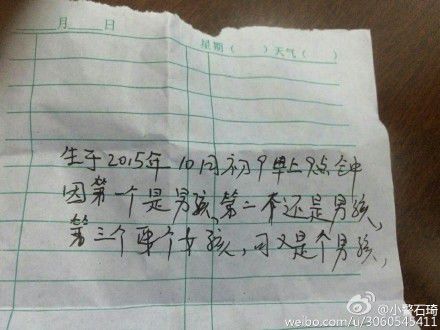 月 日
星期( )天气( )
生于2015年10月初9早上9点钟
因第一个是男孩,第二个还是男孩,
第三个要个女孩,可又是个男孩,
@小警石琦
weibo.com/u/3060545411